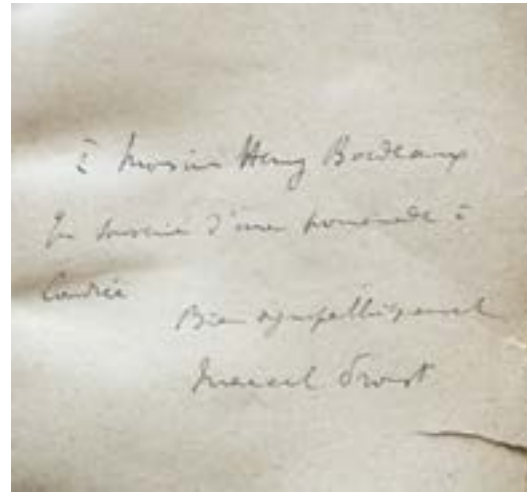 à Monsieur Henry Bordeaux
En souvenir d'une promenade à
Coudrée
Bien sympathiquement
Marcel Proust